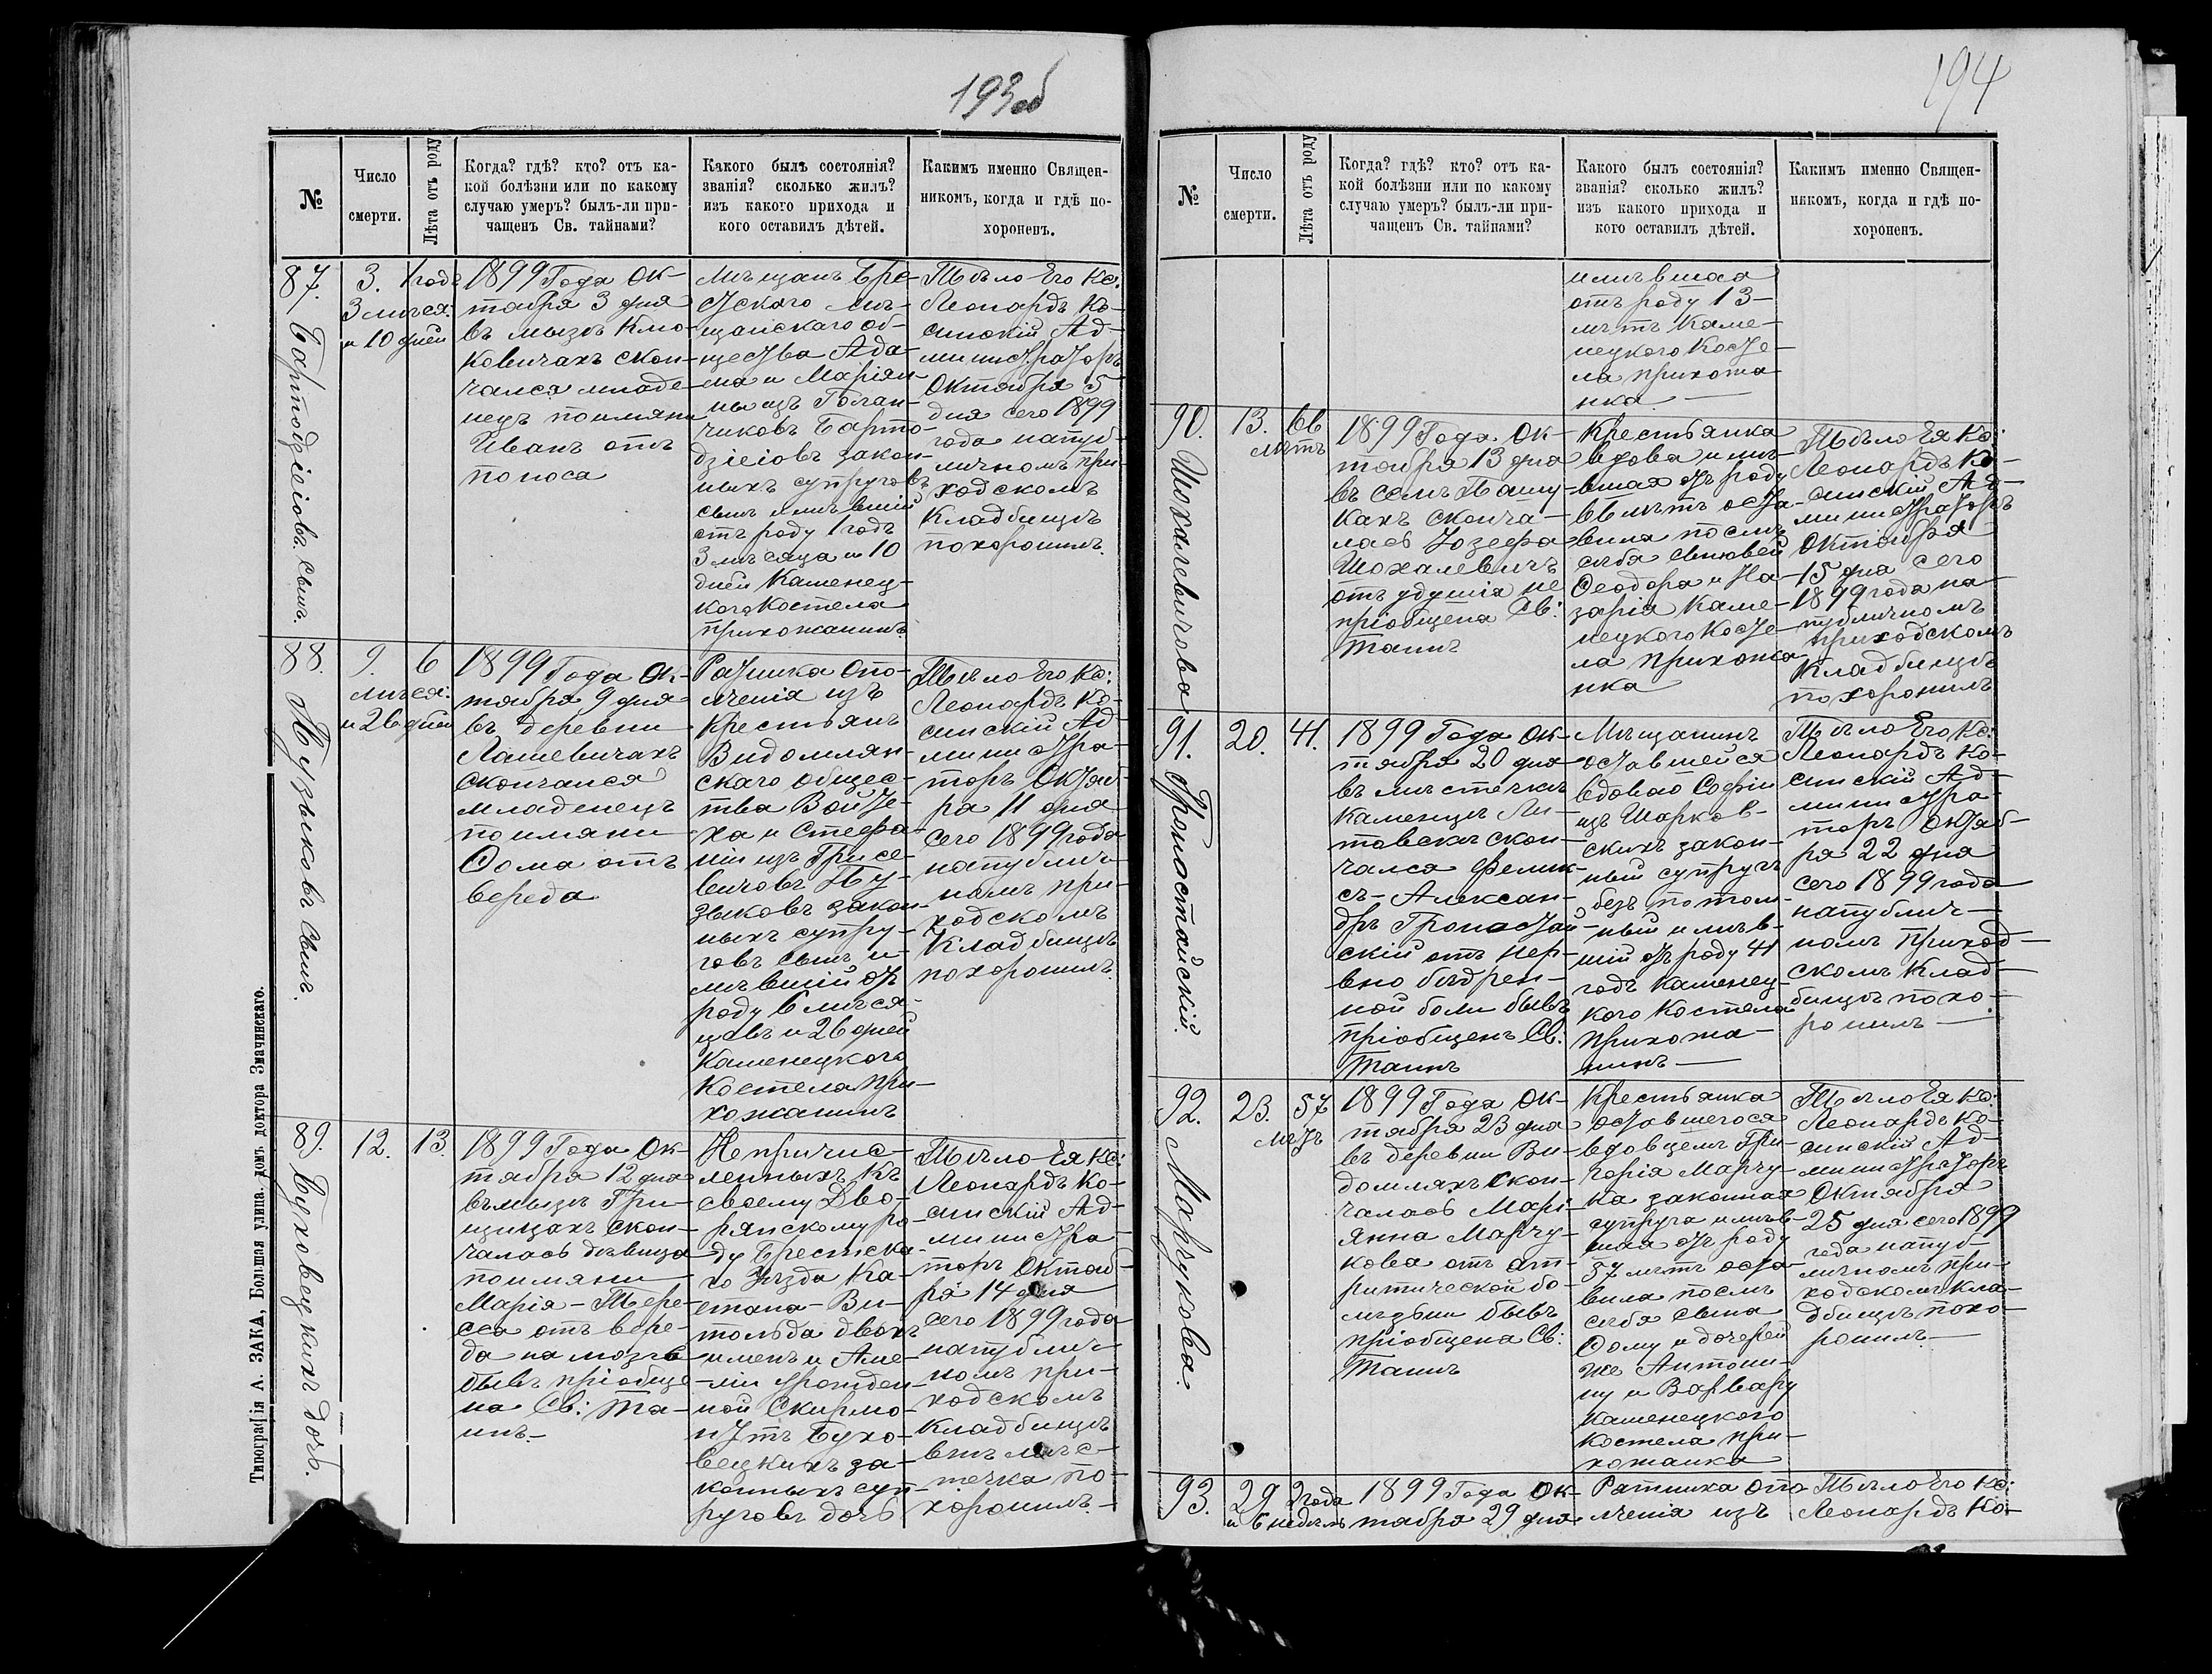 193об
№
Число
смерти.
Лѣта отъ роду
Когда? гдѣ? кто? отъ ка-
кой болѣзни или по какому
случаю умеръ? былъ-ли при-
чащенъ Св. тайнами?
Какого былъ состоянія?
званія? сколько жилъ?
изъ какого прихода и
кого оставилъ дѣтей.
Какимъ именно Священ-
никомъ, когда и гдѣ по-
хороненъ.
87.
Бартодзіеіовъ. сынъ.
3.
1 годъ
3 мѣся:
и 10 дней
1899 Года Ок-
тября 3 дня
въ мызѣ Кмо-
ковичахъ скон-
чался младе-
нецъ по имяни
Иванъ отъ
поноса
Мѣщанъ Бре-
стскаго мѣ-
щанскаго об-
щества Ада-
ма и Маріян-
ны изъ
чиковъ Барто-
дзіеіовъ закон-
ныхъ супруговъ
сынъ имѣвшій
отъ роду 1 годъ
3 мѣсяца и 10
дней Каменец-
кого Костела
прихожанинъ.
Тѣло Его Кс:
Леонардъ Ко-
синскій Ад-
министраторъ
Октября 5
дня сего 1899
года на пуб-
личномъ при-
ходскомъ
Кладбищѣ
похоронилъ.
88.
Пузыковъ сынъ.
9.
6
мѣся:
и 26 дней
1899 Года Ок-
тября 9 дня
въ деревни
Лашевичахъ
скончался
младенецъ
по имяни
Ѳома отъ
вереда
Ратника опо-
лченія изъ
крестьянъ
Видомлян-
скаго общес-
тва Войте-
ха и Стефа-
ніи изъ Грисе-
вичовъ Пу-
зыковъ закон-
ныхъ супру-
говъ сынъ и-
мѣвшій отъ
роду 6 мѣся-
цовъ и 26 дней
Каменецкого
Костела при-
хожанинъ
Тѣло Его Кс:
Леонардъ Ко-
синскій Ад-
министра-
торъ Октяб-
ря 11 дня
сего 1899 года
на публич-
номъ при-
ходскомъ
Кладбищѣ
похоронилъ.
89.
Буховецкихъ дочь.
12.
13.
1899 Года Ок-
тября 12 дня
въ мызѣ Гри-
щицахъ скон-
чалась дѣвица
по имяни
Марія-Тере-
са отъ вере-
да на мозгѣ
бывъ пріобще-
на Св: Та-
инъ.
Непричис-
ленныхъ къ
своему Дво-
рянскому ро-
ду Брестска-
го Уѣзда Ка-
етана-Ви-
тольда двохъ
именъ и Аме-
ліи урожден-
ной Скирмо-
нтъ Бухо-
вецкихъ за-
конныхъ суп-
руговъ дочь
Тѣло Ея Кс:
Леонардъ Ко-
синскій Ад-
министра-
торъ Октяб-
ря 14 дня
сего 1899 года
на публич-
номъ при-
ходскомъ
Кладбищѣ
въ мѣс-
течка по-
хоронилъ.
Типографія А. ЗАКА, Большая улица. домъ доктора Змачинскаго.
194
№
Число
смерти.
Лѣта отъ роду
Когда? гдѣ? кто? отъ ка-
кой болѣзни или по какому
случаю умеръ? былъ-ли при-
чащенъ Св. тайнами?
Какого былъ состоянія?
званія? сколько жилъ?
изъ какого прихода и
кого оставилъ дѣтей.
Какимъ именно Священ-
никомъ, когда и гдѣ по-
хороненъ.
имѣвшая
отъ роду 13-
лѣтъ Каме-
нецкого Косте-
ла прихожа-
нка.
90.
Шохалевичова
13.
66
лѣтъ
1899 Года Ок-
тября 13 дня
въ селѣ Пашу-
кахъ сконча-
лась Юзефа
Шохалевичъ
отъ удушія не
пріобщена Св:
Таинъ
Крестьянка
вдова имѣ-
вшая отъ роду
66 лѣтъ оста-
вила послѣ
себя сыновей
Ѳеодора и На-
зарія Каме-
нецкого Косте-
ла прихожа-
нка
Тѣло Ея Кс:
Леонардъ Ко-
синскій Ад-
министраторъ
Октября
15 дня сего
1899 года на
публичномъ
приходскомъ
Кладбищѣ
похоронилъ
91.
Гроностайскій.
20.
41.
1899 Года Ок-
тября 20 дня
въ мѣстечкѣ
Каменцѣ Ли-
товскѣ скон-
чался Фелик-
съ-Алексан-
дръ Гроностай-
скій отъ нер-
вно бедрен-
ной боли бывъ
пріобщенъ Св:
Таинъ
Мѣщанинъ
оставшейся
вдовою Софіи
изъ Шарков-
скихъ закон-
ный супругъ
безъ потом-
ный имѣв-
шій отъ роду 41
годъ Каменец-
кого Костела
прихожа-
нинъ
Тѣло Его Кс:
Леонардъ Ко-
синскій Ад-
министра-
торъ Октяб-
ря 22 дня
сего 1899 года
на публич-
номъ приход-
скомъ Клад-
бищѣ похо-
ронилъ
92.
Марчукова.
23.
57
лѣтъ
1899 Года Ок-
тября 23 дня
въ деревни Ви-
домляхъ скон-
чалась Марі-
янна Марчу-
кова отъ арт-
ритической бо-
лѣзни бывъ
пріобщена Св:
Таинъ
Крестьянка
оставшегося
вдовцемъ Гри-
горія Марчу-
ка законная
супруга имѣв-
шая отъ роду
57 лѣтъ оста-
вила послѣ
себя сына
Ѳому и дочерей
же Антони-
ну и Варвару
Каменецкого
Костела при-
хожанка
Тѣло Ея Кс:
Леонардъ Ко-
синскій Ад-
министраторъ
Октября
25 дня сего 1899
года на пуб-
личномъ при-
ходскомъ кла-
дбищѣ похо-
ронилъ.
93.
29
2 года
и 6 недѣль
1899 Года Ок-
тября 29 дня
Ратника опо-
лченія изъ
Тѣло Его Кс:
Леонардъ Ко-